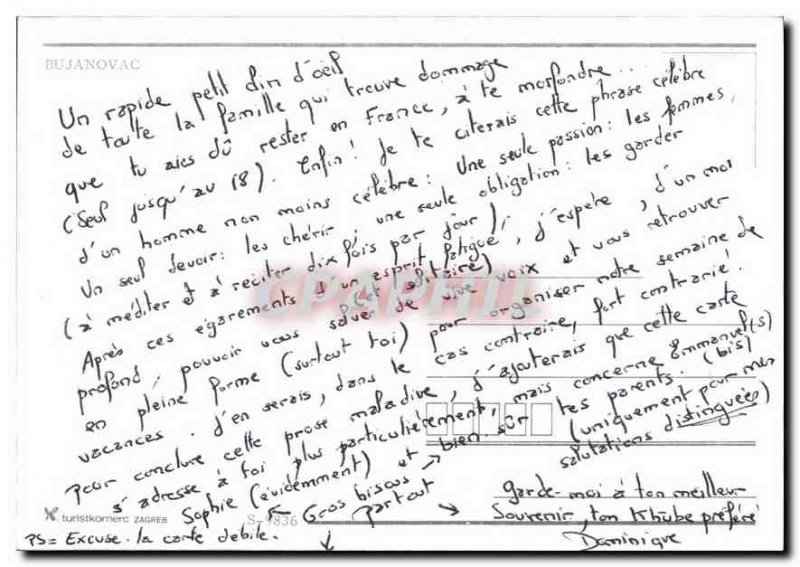 BUJANOVAC
Un rapide petit clin d'oeil
de toute la famille qui trouve dommage
que tu aies dû rester en France, à te morfondre...
(Seul jusqu'au 18). Enfin! Je te citerais cette phrase célèbre
d'un homme non moins célèbre: Une seule passion: les femmes,
Un seul devoir: les chérir; une seule obligation: les garder
(à méditer et à réciter dix fois par jour)!
Après ces égarements d'un esprit fatigué, j'espère, d'un moi
(et solitaire)
profond, pouvoir vous saluer de vive voix et vous retrouver
en pleine forme (surtout toi) pour organiser notre semaine de
vacances. J'en serais, dans le cas contraire, fort contrarié!
Pour conclure cette prose maladive, j'ajouterais que cette carte
s'adresse à toi plus particulièrement, mais concerne Emmanuel(s)
(bis)
Sophie (évidemment) et bien sûr tes parents.
(uniquement pour mes
salutations distinguées)
Gros bisous
partout
garde-moi à ton meilleur
Souvenir, ton Khûbe préféré
Dominique
turistkomerc ZAGREB
S-4836
PS= Excuse. la carte débile.
CPAPHIL